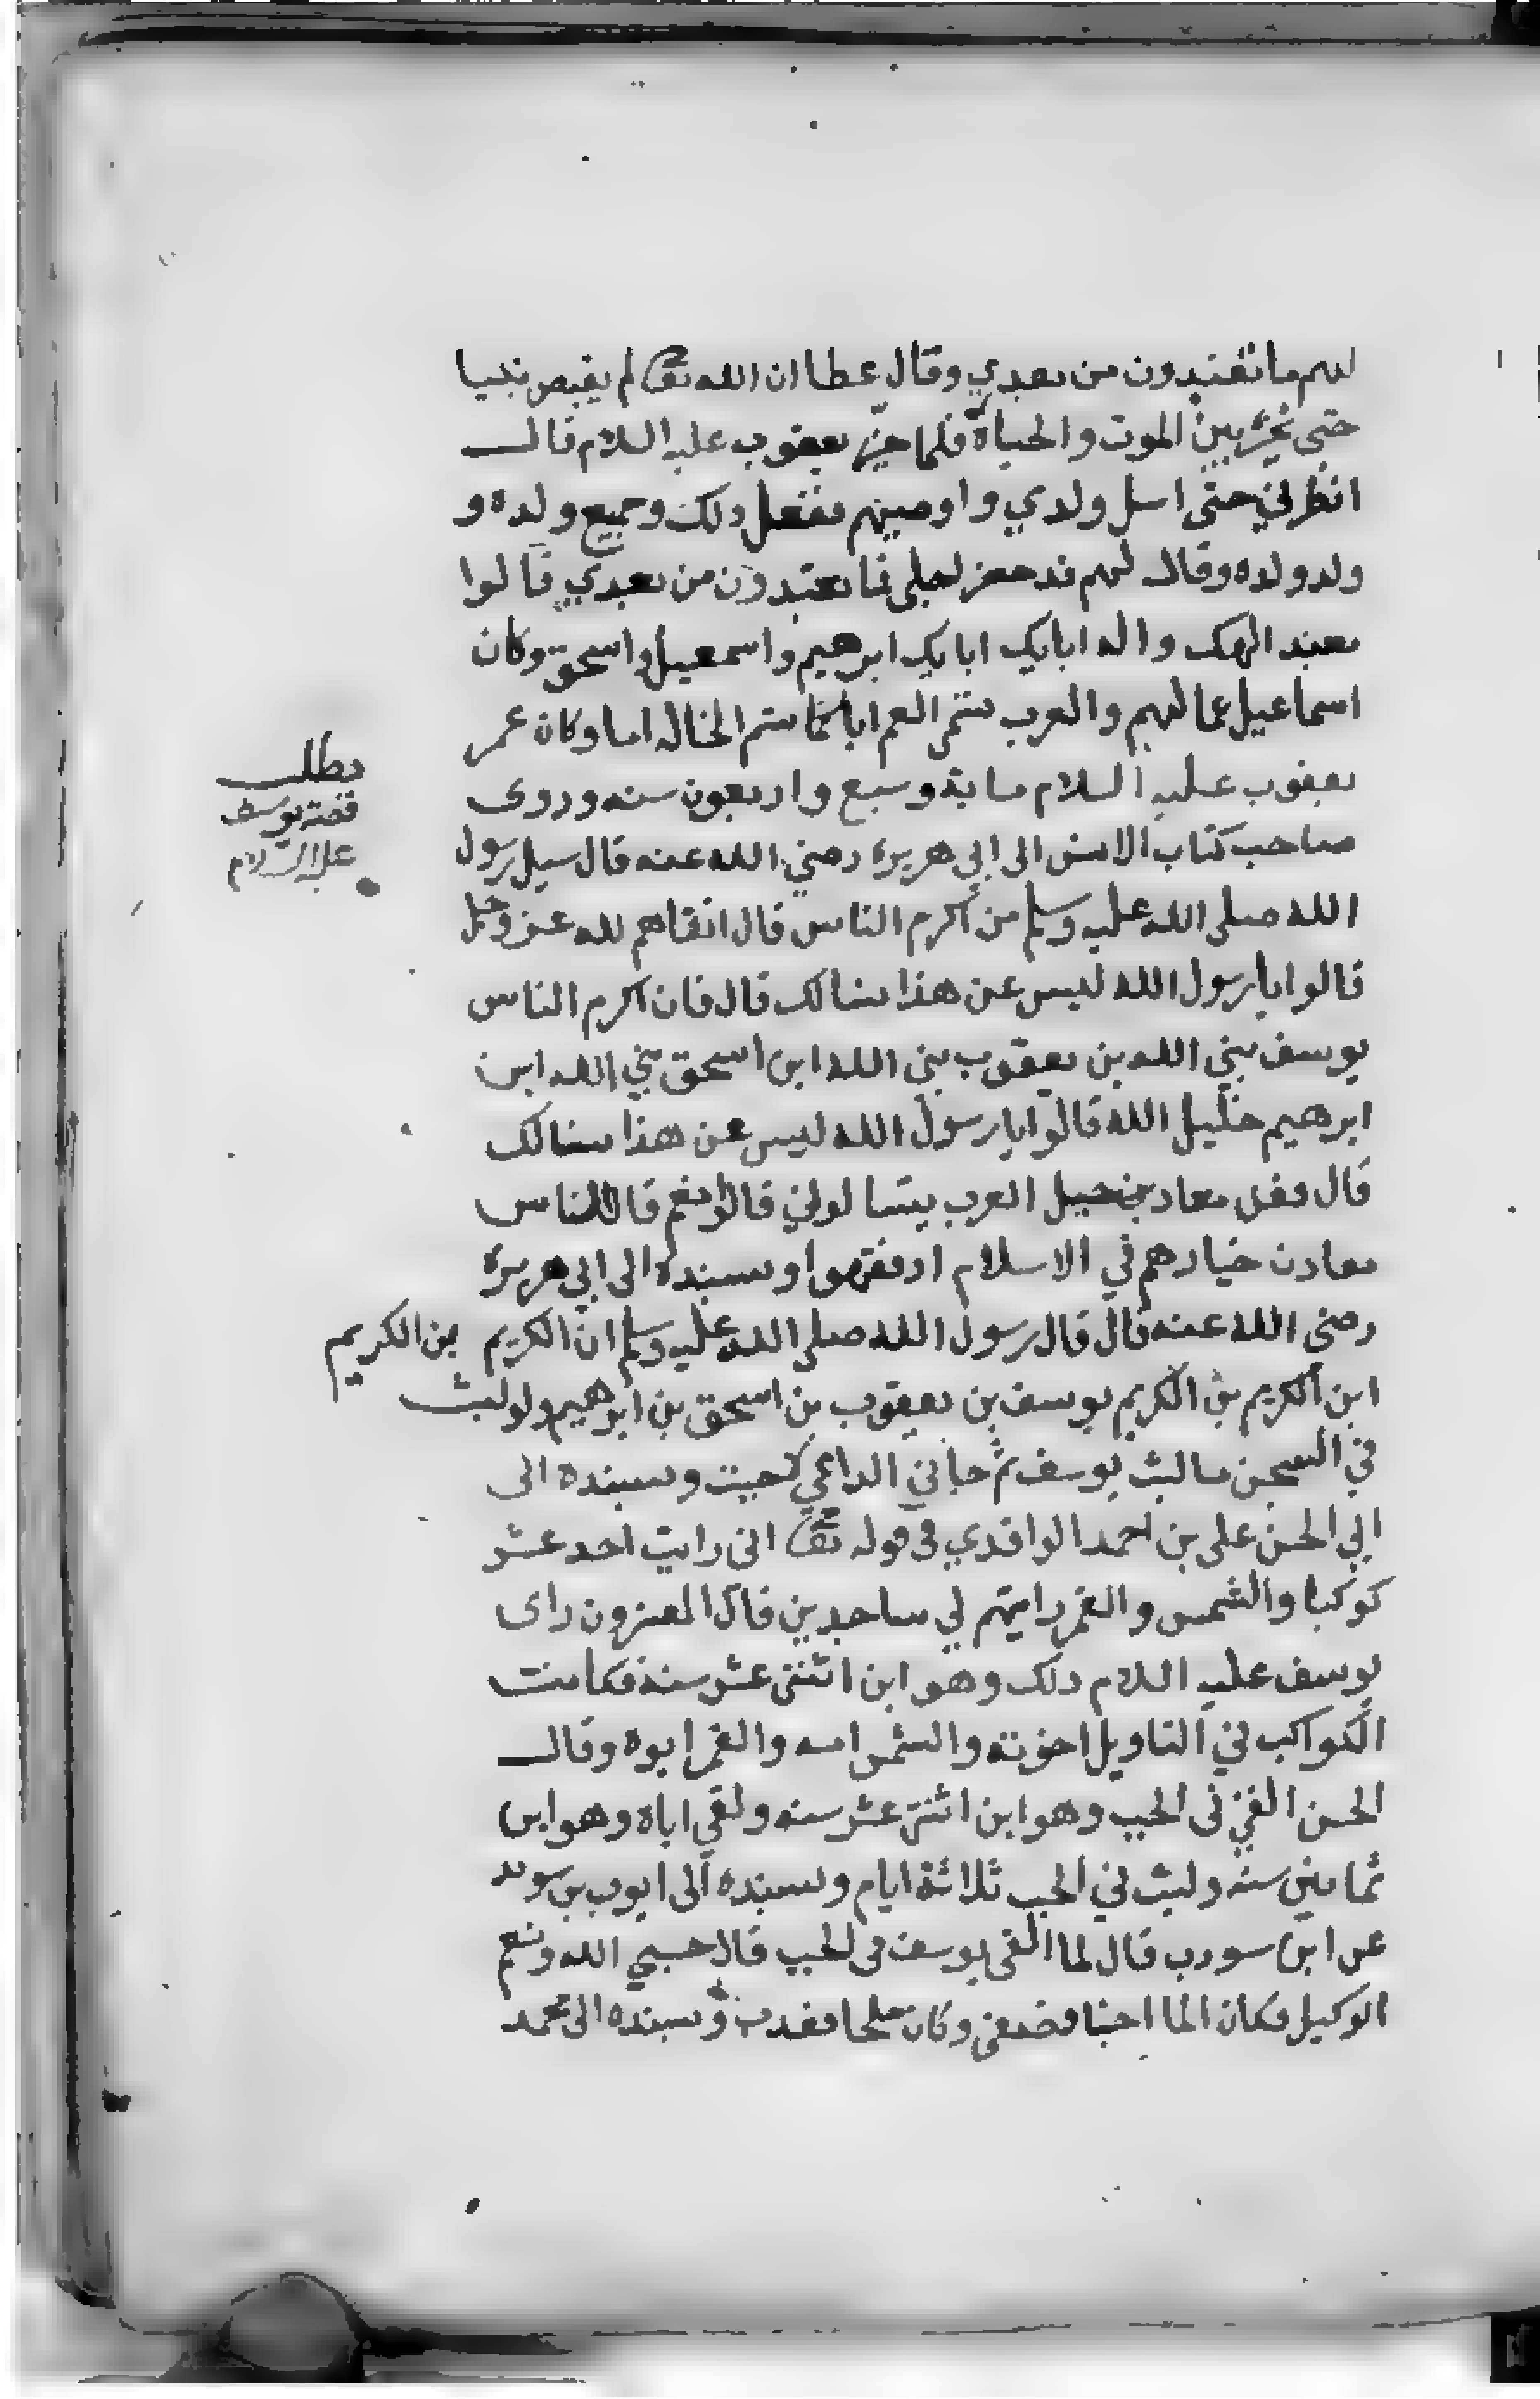 لهم ما تعبدون من بعدي وقال عطا ان الله تعالى لم يقبض نبيا
حتى يخير بين الموت والحياة فلما خير يعقوب عليه السلام قال
انظرني حتى اسل ولدي واوصيهم ففعل ذلك وجميع ولده و
ولد ولده وقال لهم قد حضر اجلي فما تعبدون من بعدي قالوا
نعبد الهك واله ابايك ابايك ابرهيم واسمعيل واسحق وكان
اسماعيل عما لهم والعرب تسمي العم ابا كما تسم الخاله اما وكان عمر
يعقوب عليه السلام ماية وسبع واربعون سنه وروى
مطلب
قصة يوسف
عليه السلام
صاحب كتاب الانس الى ابي هريرة رضي الله عنه قال سيل رسول
الله صلى الله عليه وسلم من اكرم الناس قال اتقاهم لله عز وجل
قالوا يا رسول الله ليس عن هذا نسالك قال فان اكرم الناس
يوسف نبي الله بن يعقوب نبي الله ابن اسحق نبي الله ابن
ابرهيم خليل الله قالوا يا رسول الله ليس عن هذا نسالك
قال فعن معادن العرب يتسا لوني قالوا نعم قال الناس
معادن خيارهم في الاسلام اذ فقهوا وبسنده الى ابي هريرة
رضى الله عنه قال قال رسول الله صلى الله عليه وسلم ان الكريم بن الكريم
ابن الكريم بن الكريم يوسف بن يعقوب بن اسحق بن ابرهيم ولو لبث
في السجن ما لبث يوسف ثم جاني الداعي لاجبت وبسنده الى
ابي الحسن على بن احمد الواقدي في قوله تعالى اني رايت احد عشر
كوكبا والشمس والقمر رايتهم لي ساجدين قال المفسرون راى
يوسف عليه السلام ذلك وهو ابن اثنتي عشر سنة فكانت
الكواكب في التاويل اخوته والشمس امه والقمر ابوه وقال
الحسن القي في الجب وهو ابن اثنتي عشر سنه ولقي اباه وهو ابن
ثمانين سنه ولبث في الجب ثلاثة ايام وبسنده الى ايوب بن سويد
عن ابن قال لما القى يوسف في الجب قال حسبي الله ونعم
الوكيل فكان الما اجنا فصفى وكان ملحا فعذب وبسنده الى محمد